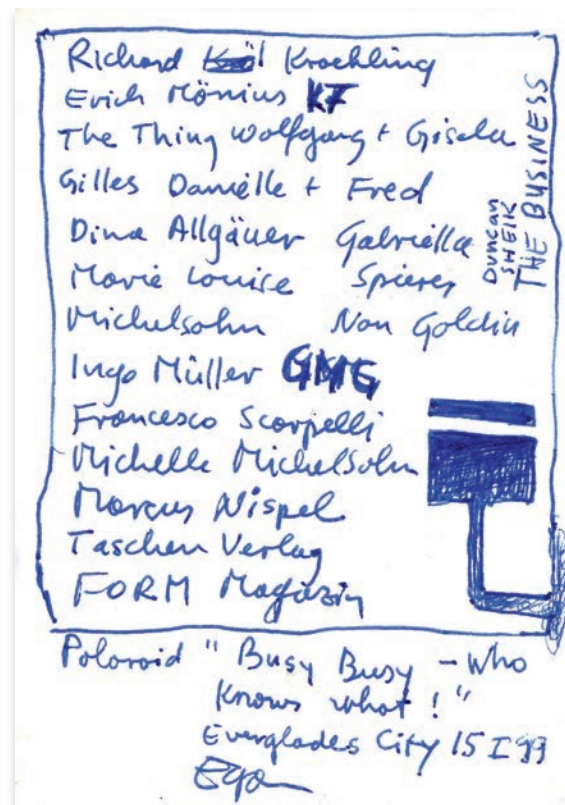 Richard Kroehling
Erich Mönius KF
The Thing Wolfgang + Gisela
Gilles Danièlle + Fred
Dina Allgäuer Gabriella
Marie Louise Spierer
Michelsohn Nan Goldin
Ingo Müller GMG
Francesco Scarpelli
Michelle Michelsohn
Marcus Nispel
Taschen Verlag
FORM Magazin
Duncan
SHEIK
THE BUSINESS
Polaroid "Busy Busy – Who
Knows what!"
Everglades City 15 I 99